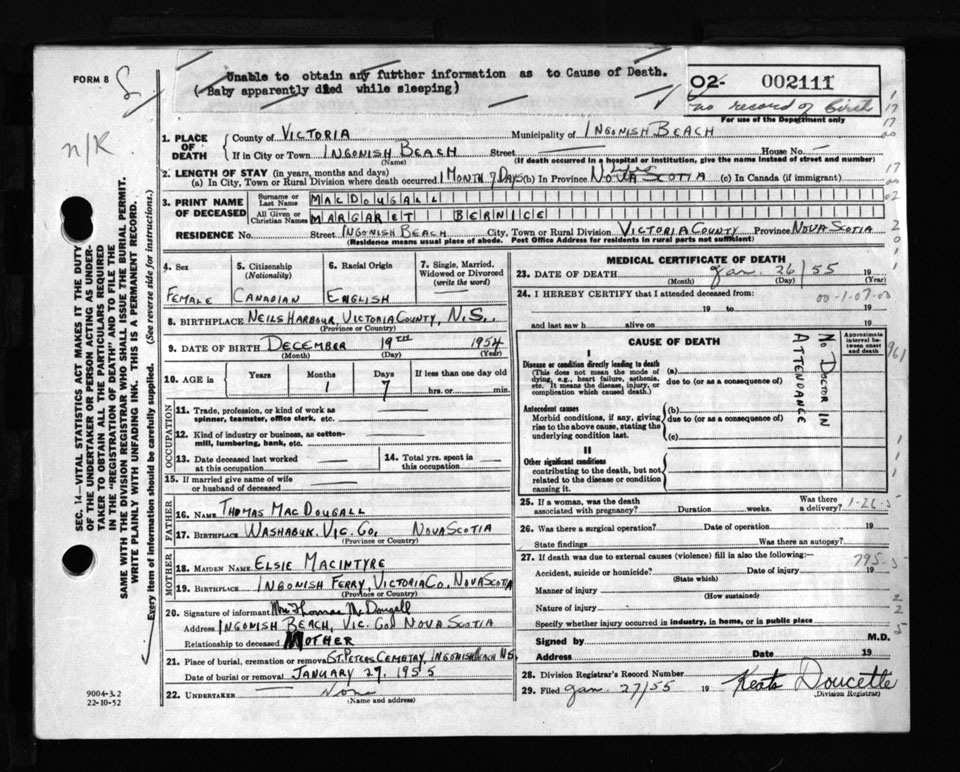 FORM 8
Unable to obtain any further information as to Cause of Death.
(Baby apparently died while sleeping)
02- 002111
no record of Birth
For use of the Department only
n/R.
SEC. 14—VITAL STATISTICS ACT MAKES IT THE DUTY
OF THE UNDERTAKER OR PERSON ACTING AS UNDER-
TAKER TO OBTAIN ALL THE PARTICULARS REQUIRED
IN THE "REGISTRATION OF DEATH" AND TO FILE THE
SAME WITH THE DIVISION REGISTRAR WHO SHALL ISSUE THE BURIAL PERMIT.
WRITE PLAINLY WITH UNFADING INK. THIS IS A PERMANENT RECORD.
Every item of information should be carefully supplied. (See reverse side for instructions.)
1. PLACE OF DEATH County of VICTORIA Municipality of INGONISH BEACH
If in City or Town INGONISH BEACH Street House No.
(Name) (If death occurred in a hospital or institution, give the name instead of street and number)
2. LENGTH OF STAY (in years, months and days)
(a) In City, Town or Rural Division where death occurred 1 MONTH 7 DAYS (b) In Province NOVA SCOTIA (c) In Canada (if immigrant)
3. PRINT NAME OF DECEASED Surname or Last Name MACDOUGALL
All Given or Christian Names MARGARET BERNICE
RESIDENCE No. Street INGONISH BEACH City, Town or Rural Division VICTORIA COUNTY Province NOVA SCOTIA
(Residence means usual place of abode. Post Office Address for residents in rural parts not sufficient)
4. Sex
FEMALE
5. Citizenship
(Nationality)
CANADIAN
6. Racial Origin
ENGLISH
7. Single, Married,
Widowed or Divorced
(write the word)
8. BIRTHPLACE NEILS HARBOUR, VICTORIA COUNTY, N.S.
(Province or Country)
9. DATE OF BIRTH DECEMBER 19TH 1954
(Month) (Day) (Year)
10. AGE in Years Months Days If less than one day old
1 7 hrs. or min.
OCCUPATION
11. Trade, profession, or kind of work as
spinner, teamster, office clerk, etc.
12. Kind of industry or business, as cotten-
mill, lumbering, bank, etc.
13. Date deceased last worked
at this occupation
14. Total yrs. spent in
this occupation
15. If married give name of wife
or husband of deceased
FATHER
16. NAME THOMAS MACDOUGALL
17. BIRTHPLACE WASHABUK. VIC. CO. NOVA SCOTIA
(Province or Country)
MOTHER
18. MAIDEN NAME ELSIE MACINTYRE
19. BIRTHPLACE INGONISH FERRY, VICTORIA CO, NOVA SCOTIA
(Province or Country)
20. Signature of informant Mrs Thomas McDougall
Address INGONISH BEACH, VIC. CO NOVA SCOTIA
Relationship to deceased MOTHER
21. Place of burial, cremation or removal ST. PETERS CEMETRY, INGONISH BEACH N.S.
Date of burial or removal JANUARY 27, 1955
22. UNDERTAKER None
(Name and address)
9004-3.2
22-10-52
MEDICAL CERTIFICATE OF DEATH
23. DATE OF DEATH Jan. 26/55 19
(Month) (Day) (Year)
24. I HEREBY CERTIFY that I attended deceased from:
00-1-07-00
19 to 19
and last saw h alive on 19
CAUSE OF DEATH
Approximate interval between onset and death
I
Disease or condition directly leading to death
(This does not mean the mode of
dying, e.g., heart failure, asthenia,
etc. It means the disease, injury, or
complication which caused death.)
(a)
due to (or as a consequence of)
Antecedent causes
Morbid conditions, if any, giving
rise to the above cause, stating the
underlying condition last.
(b)
due to (or as a consequence of)
(c)
II
Other significant conditions
contributing to the death, but not
related to the disease or condition
causing it.
NO DOCTOR IN
ATTENDANCE
25. If a woman, was the death
associated with pregnancy? Duration weeks. Was there a delivery?
26. Was there a surgical operation? Date of operation 19
State findings Was there an autopsy?
27. If death was due to external causes (violence) fill in also the following:—
795-5
Accident, suicide or homicide? Date of injury 19
(State which)
Manner of injury
(How sustained)
Nature of injury
Specify whether injury occurred in industry, in home, or in public place
Signed by M.D.
Address Date 19
28. Division Registrar's Record Number
29. Filed Jan. 27/55 19 Keats Doucette
(Division Registrar)